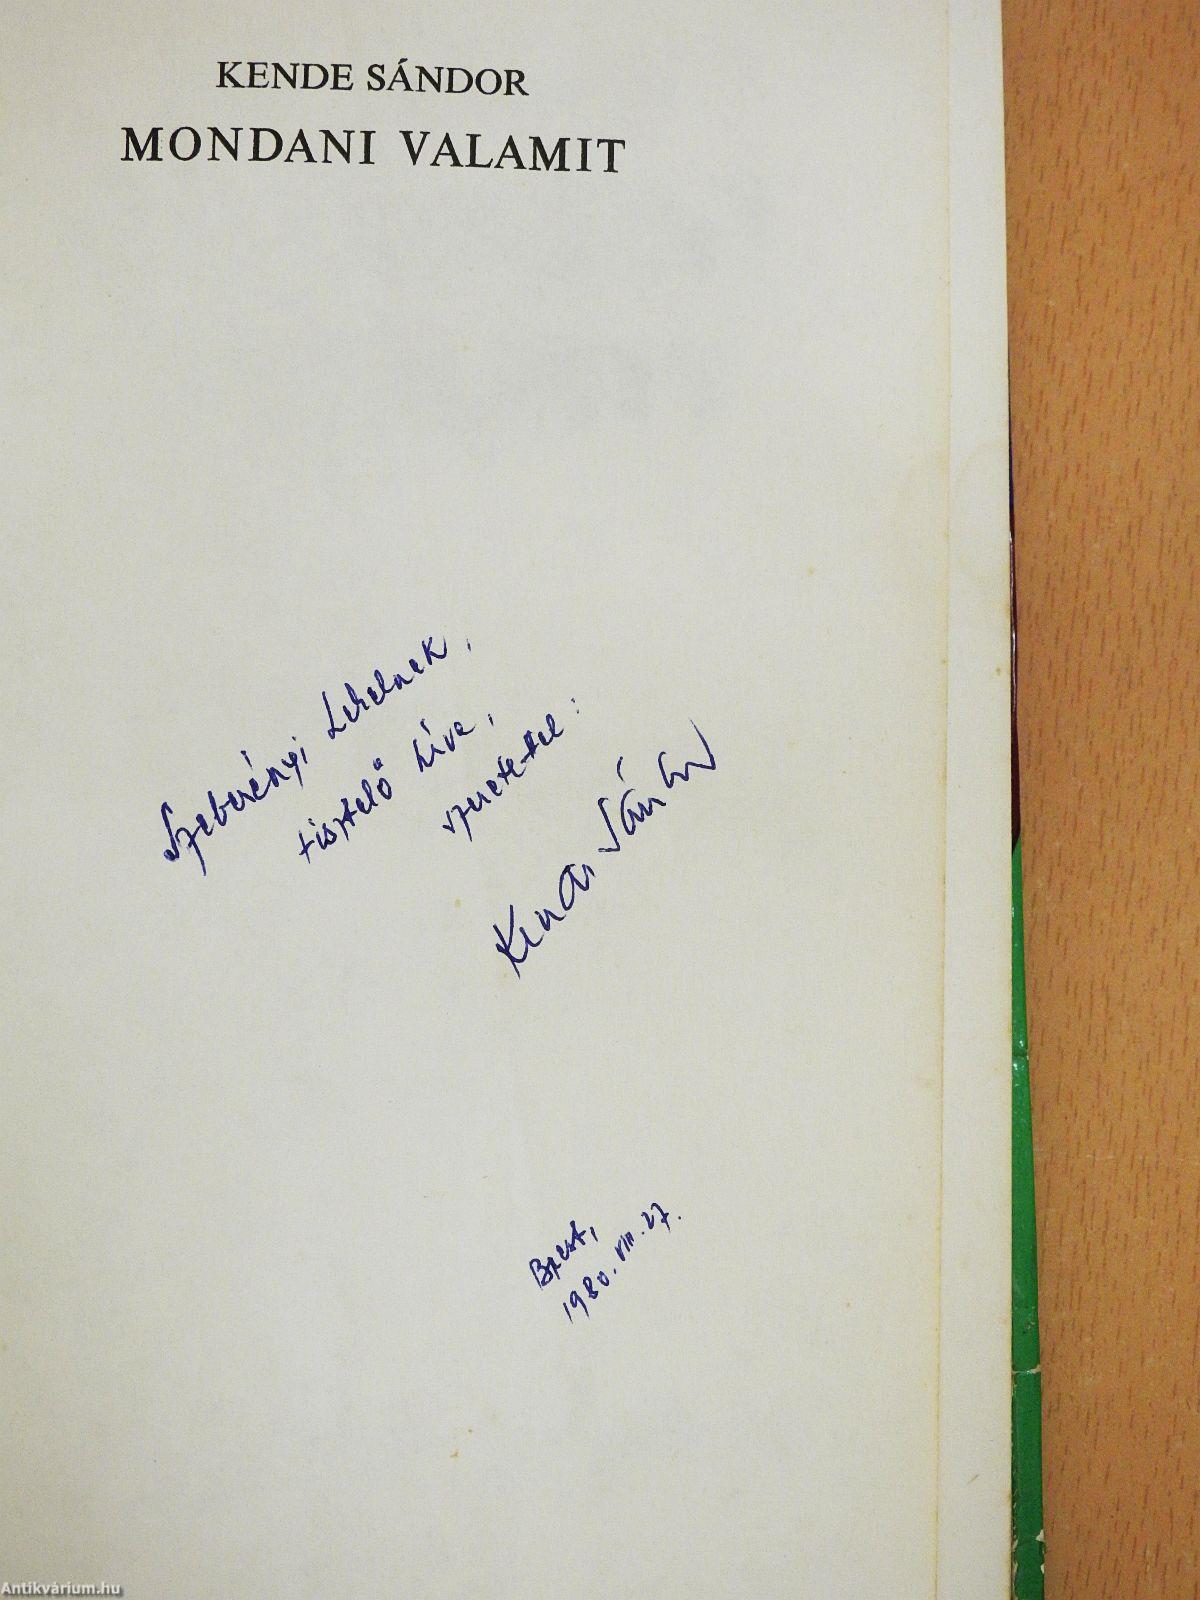 KENDE SÁNDOR
MONDANI VALAMIT
Szeberényi Lehelnek,
tisztelő híve,
szeretettel:
Kende Sándor
Bpest,
1980. VIII. 27.
Antikvárium.hu